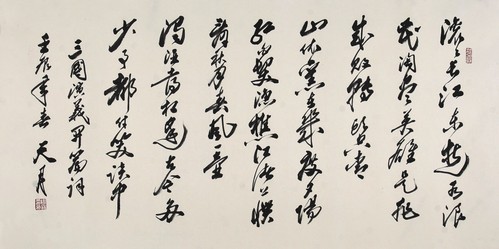 滚滚长江东逝水浪
花淘尽英雄是非
成败转头空青
山依旧在几度夕阳
红白发渔樵江渚上惯
看秋月春风一壶
浊酒喜相逢古今多
少事都付笑谈中
三國演義開篇詞
壬辰年春 天月